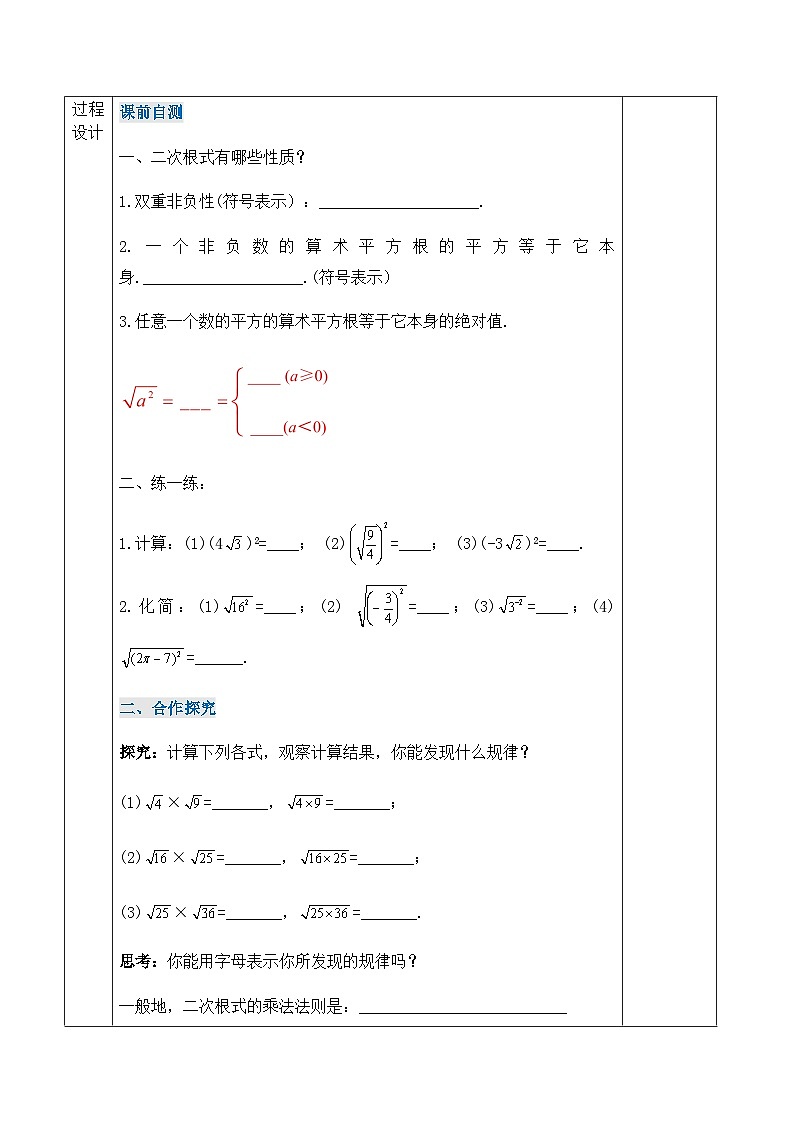 过程
设计
课前自测
一、二次根式有哪些性质？
1.双重非负性(符号表示）：____________________.
2. 一个非负数的算术平方根的平方等于它本
身.____________________.(符号表示)
3.任意一个数的平方的算术平方根等于它本身的绝对值.
√a² = ___ = { ____ (a≥0)
____(a＜0)
二、练一练：
1.计算：(1)(4√3)²=____； (2)(√(9/4))²=____； (3)(-3√2)²=____.
2. 化简：(1)√16²=____；(2) √((-3/4)²)=____；(3)√3⁻²=____；(4)
√((2π-7)²)=______.
二、合作探究
探究：计算下列各式，观察计算结果，你能发现什么规律？
(1)√4×√9=_______，√4×9=_______；
(2)√16×√25=_______，√16×25=_______；
(3)√25×√36=_______，√25×36=_______.
思考：你能用字母表示你所发现的规律吗？
一般地，二次根式的乘法法则是：__________________________